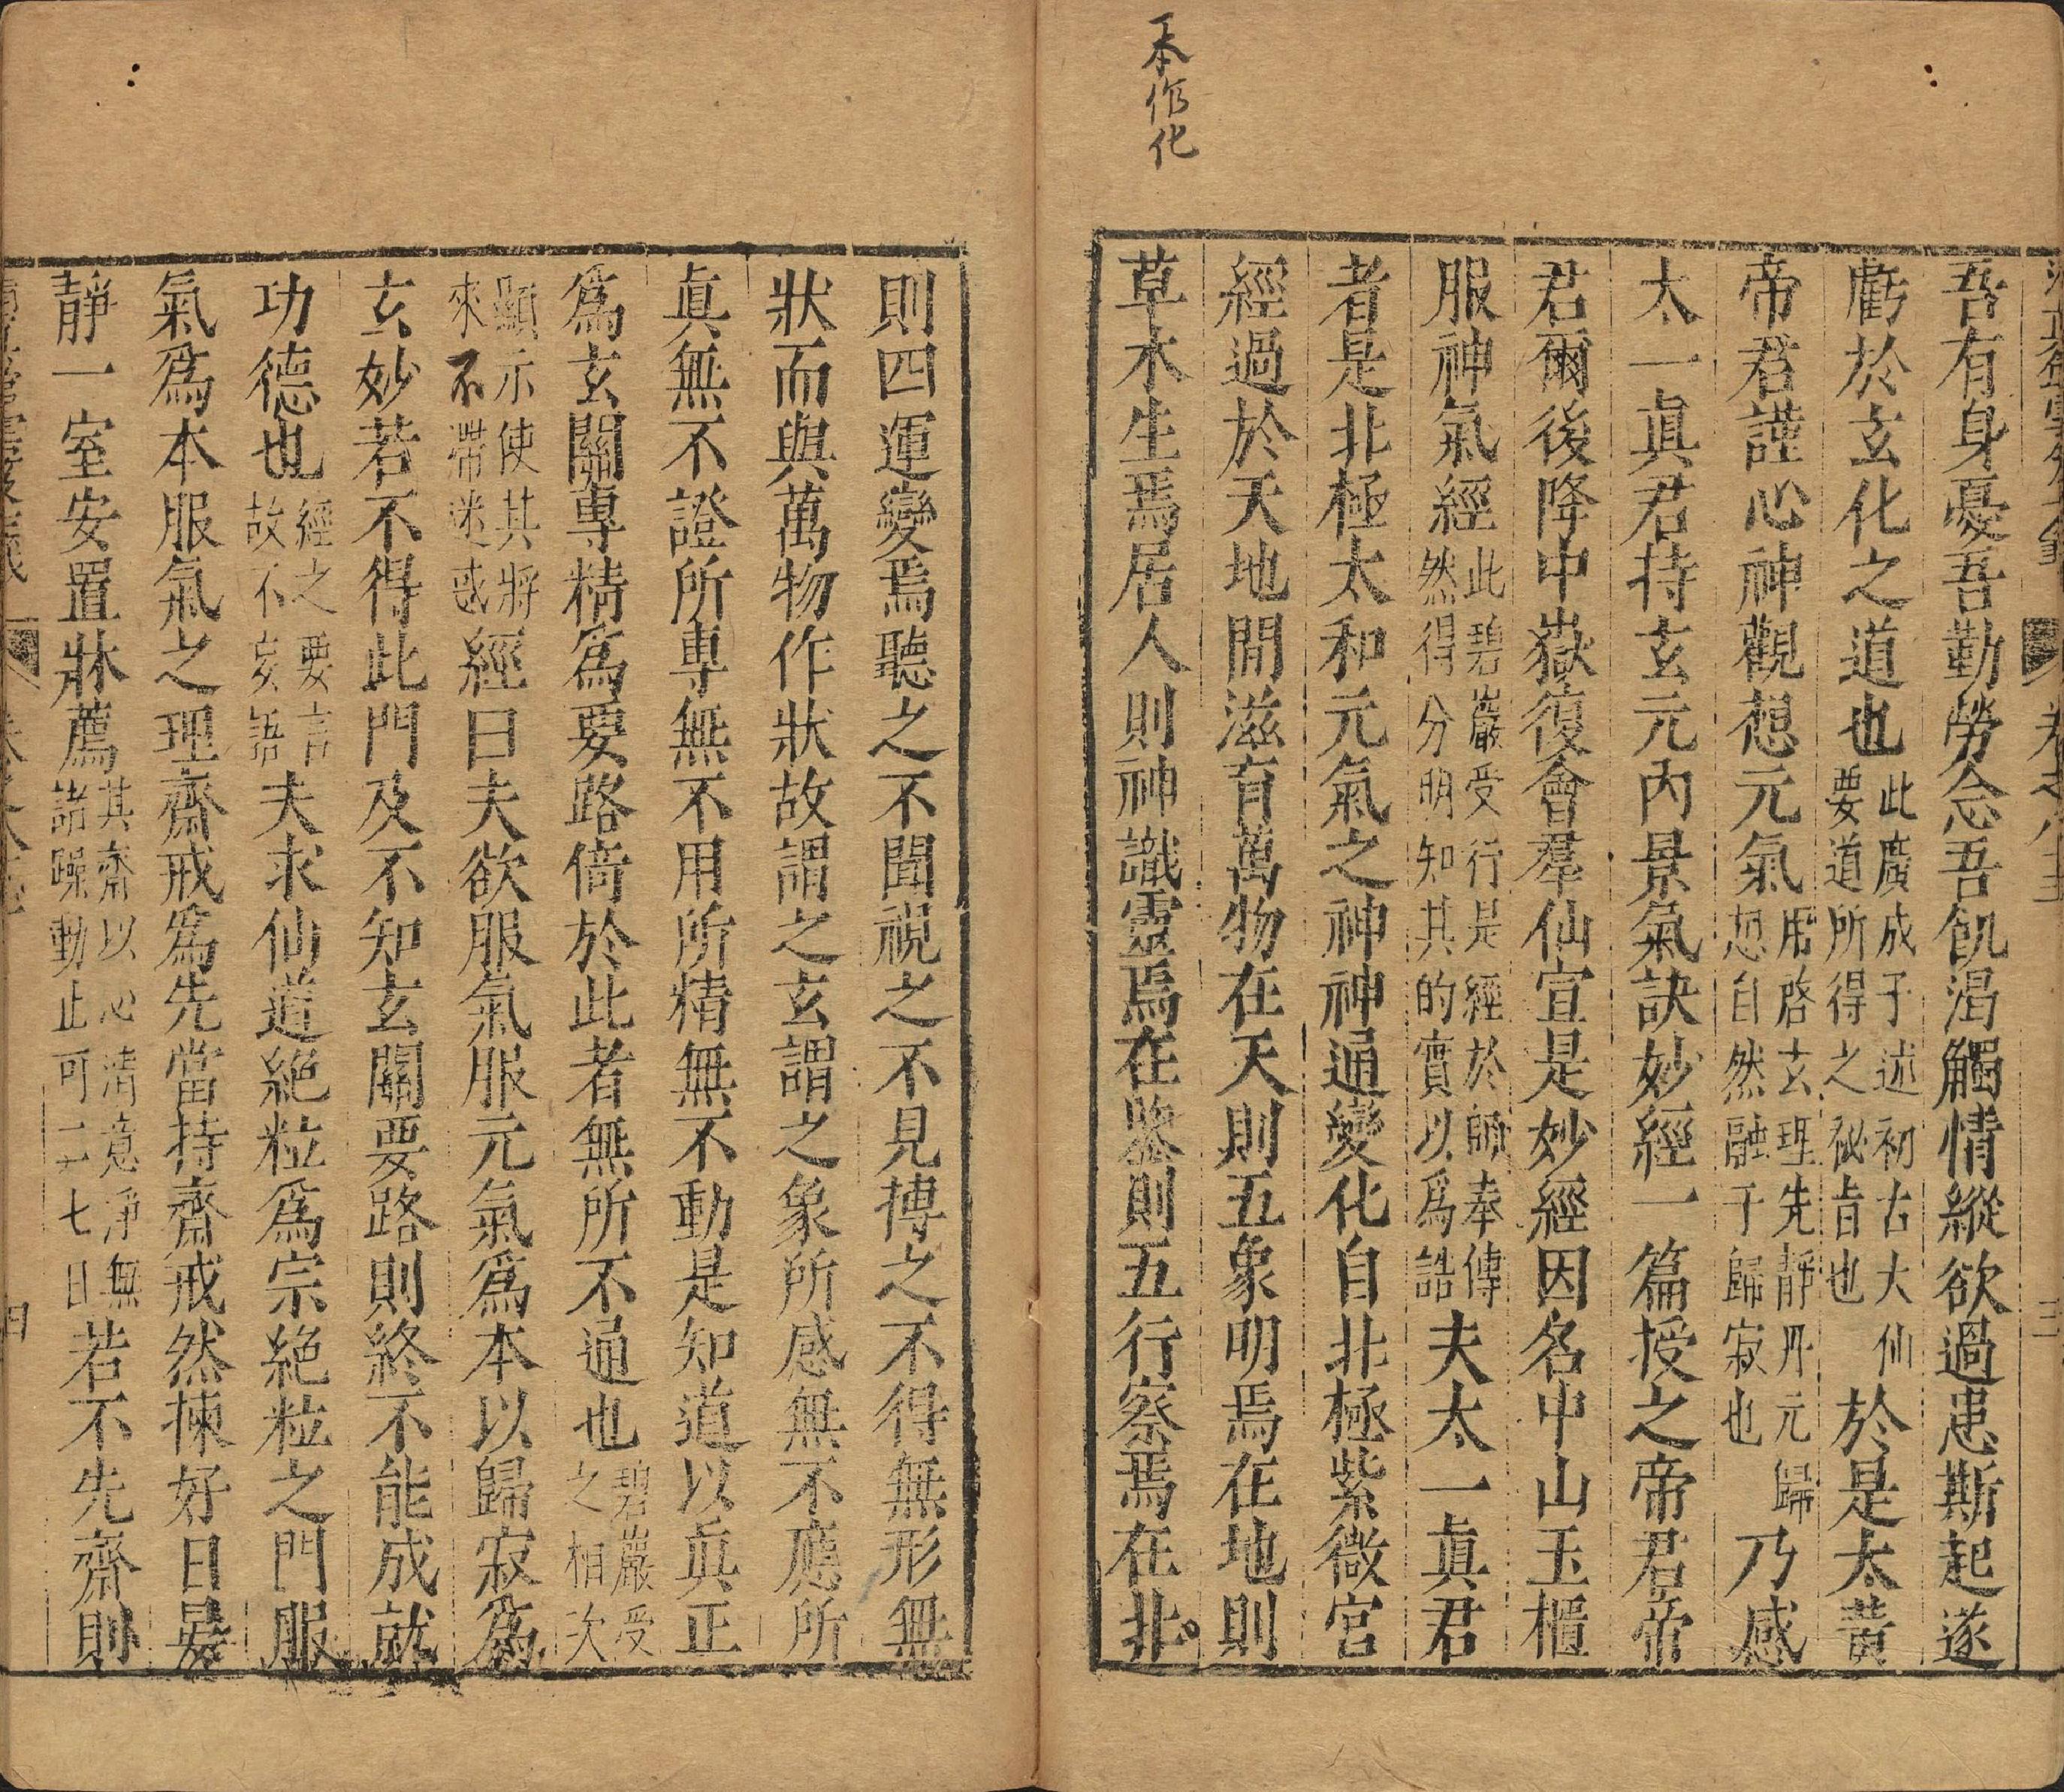 本作化
吾有身憂吾勤勞念吾飢渴觸情縱欲過患斯起遂
虧於玄化之道也此廣成子述初古大仙要道所得之祕旨也於是太黃
帝君謹心神觀想元氣用啓玄理先靜丹元歸想自然融于歸寂也乃感
太一眞君持玄元內景氣訣妙經一篇授之帝君帝
君爾後降中嶽復會羣仙宣是妙經因名中山玉櫃
服神氣經此碧巖受行是經於師奉傳然得分明知其的實以爲誥夫太一眞君
者是北極太和元氣之神神通變化自北極紫微宮
經過於天地間滋育萬物在天則五象明焉在地則
草木生焉居人則神識靈焉在臟則五行察焉在北
則四運變焉聽之不聞視之不見摶之不得無形無
狀而與萬物作狀故謂之玄謂之象所感無不應所
眞無不證所專無不用所精無不動是知道以眞正
爲玄關專精爲要路倚於此者無所不通也碧巖受之相次
顯示使其將來不滯迷惑經曰夫欲服氣服元氣爲本以歸寂爲
玄妙若不得此門及不知玄關要路則終不能成就
功德也經之要言故不妄語夫求仙道絕粒爲宗絕粒之門服
氣爲本服氣之理齋戒爲先當持齋戒然揀好日晏
靜一室安置牀薦其齋以心清意淨無諸躁動止可二七日若不先齋則
四